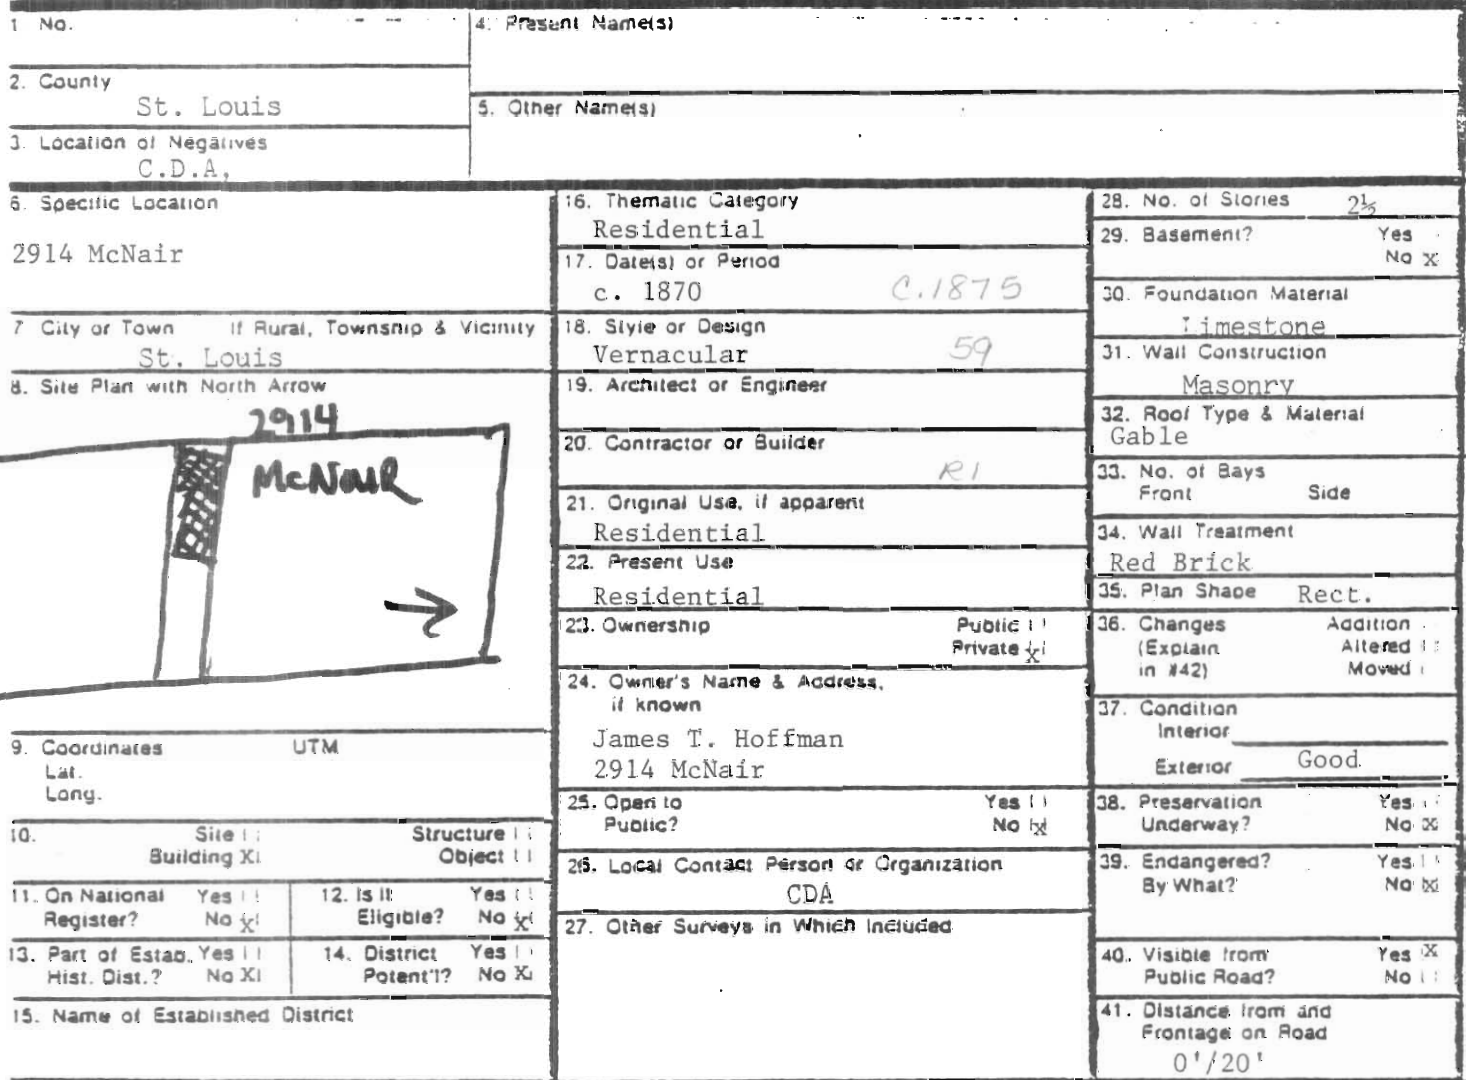 1 No.
4. Present Name(s)
2. County
St. Louis
5. Other Name(s)
3. Location of Negatives
C.D.A,
6. Specific Location
2914 McNair
7 City or Town If Rural, Township & Vicinity
St. Louis
8. Site Plan with North Arrow
2914
McNAIR
9. Coordinates UTM
Lat.
Long.
10. Site Structure
Building X Object
11. On National Yes
Register? No X
12. Is It Yes
Eligible? No X
13. Part of Estab. Yes
Hist. Dist.? No X
14. District Yes
Potent'l? No X
15. Name of Established District
16. Thematic Category
Residential
17. Date(s) or Period
c. 1870 C.1875
18. Style or Design
Vernacular 59
19. Architect or Engineer
20. Contractor or Builder
R1
21. Original Use, if apparent
Residential
22. Present Use
Residential
23. Ownership Public
Private X
24. Owner's Name & Address,
if known
James T. Hoffman
2914 McNair
25. Open to Yes
Public? No X
26. Local Contact Person or Organization
CDA
27. Other Surveys in Which Included
28. No. of Stories 2½
29. Basement? Yes
No X
30. Foundation Material
Limestone
31. Wall Construction
Masonry
32. Roof Type & Material
Gable
33. No. of Bays
Front Side
34. Wall Treatment
Red Brick
35. Plan Shape Rect.
36. Changes Addition
(Explain Altered
in #42) Moved
37. Condition
Interior
Exterior Good
38. Preservation Yes
Underway? No X
39. Endangered? Yes
By What? No X
40. Visible from Yes X
Public Road? No
41. Distance from and
Frontage on Road
0'/20'